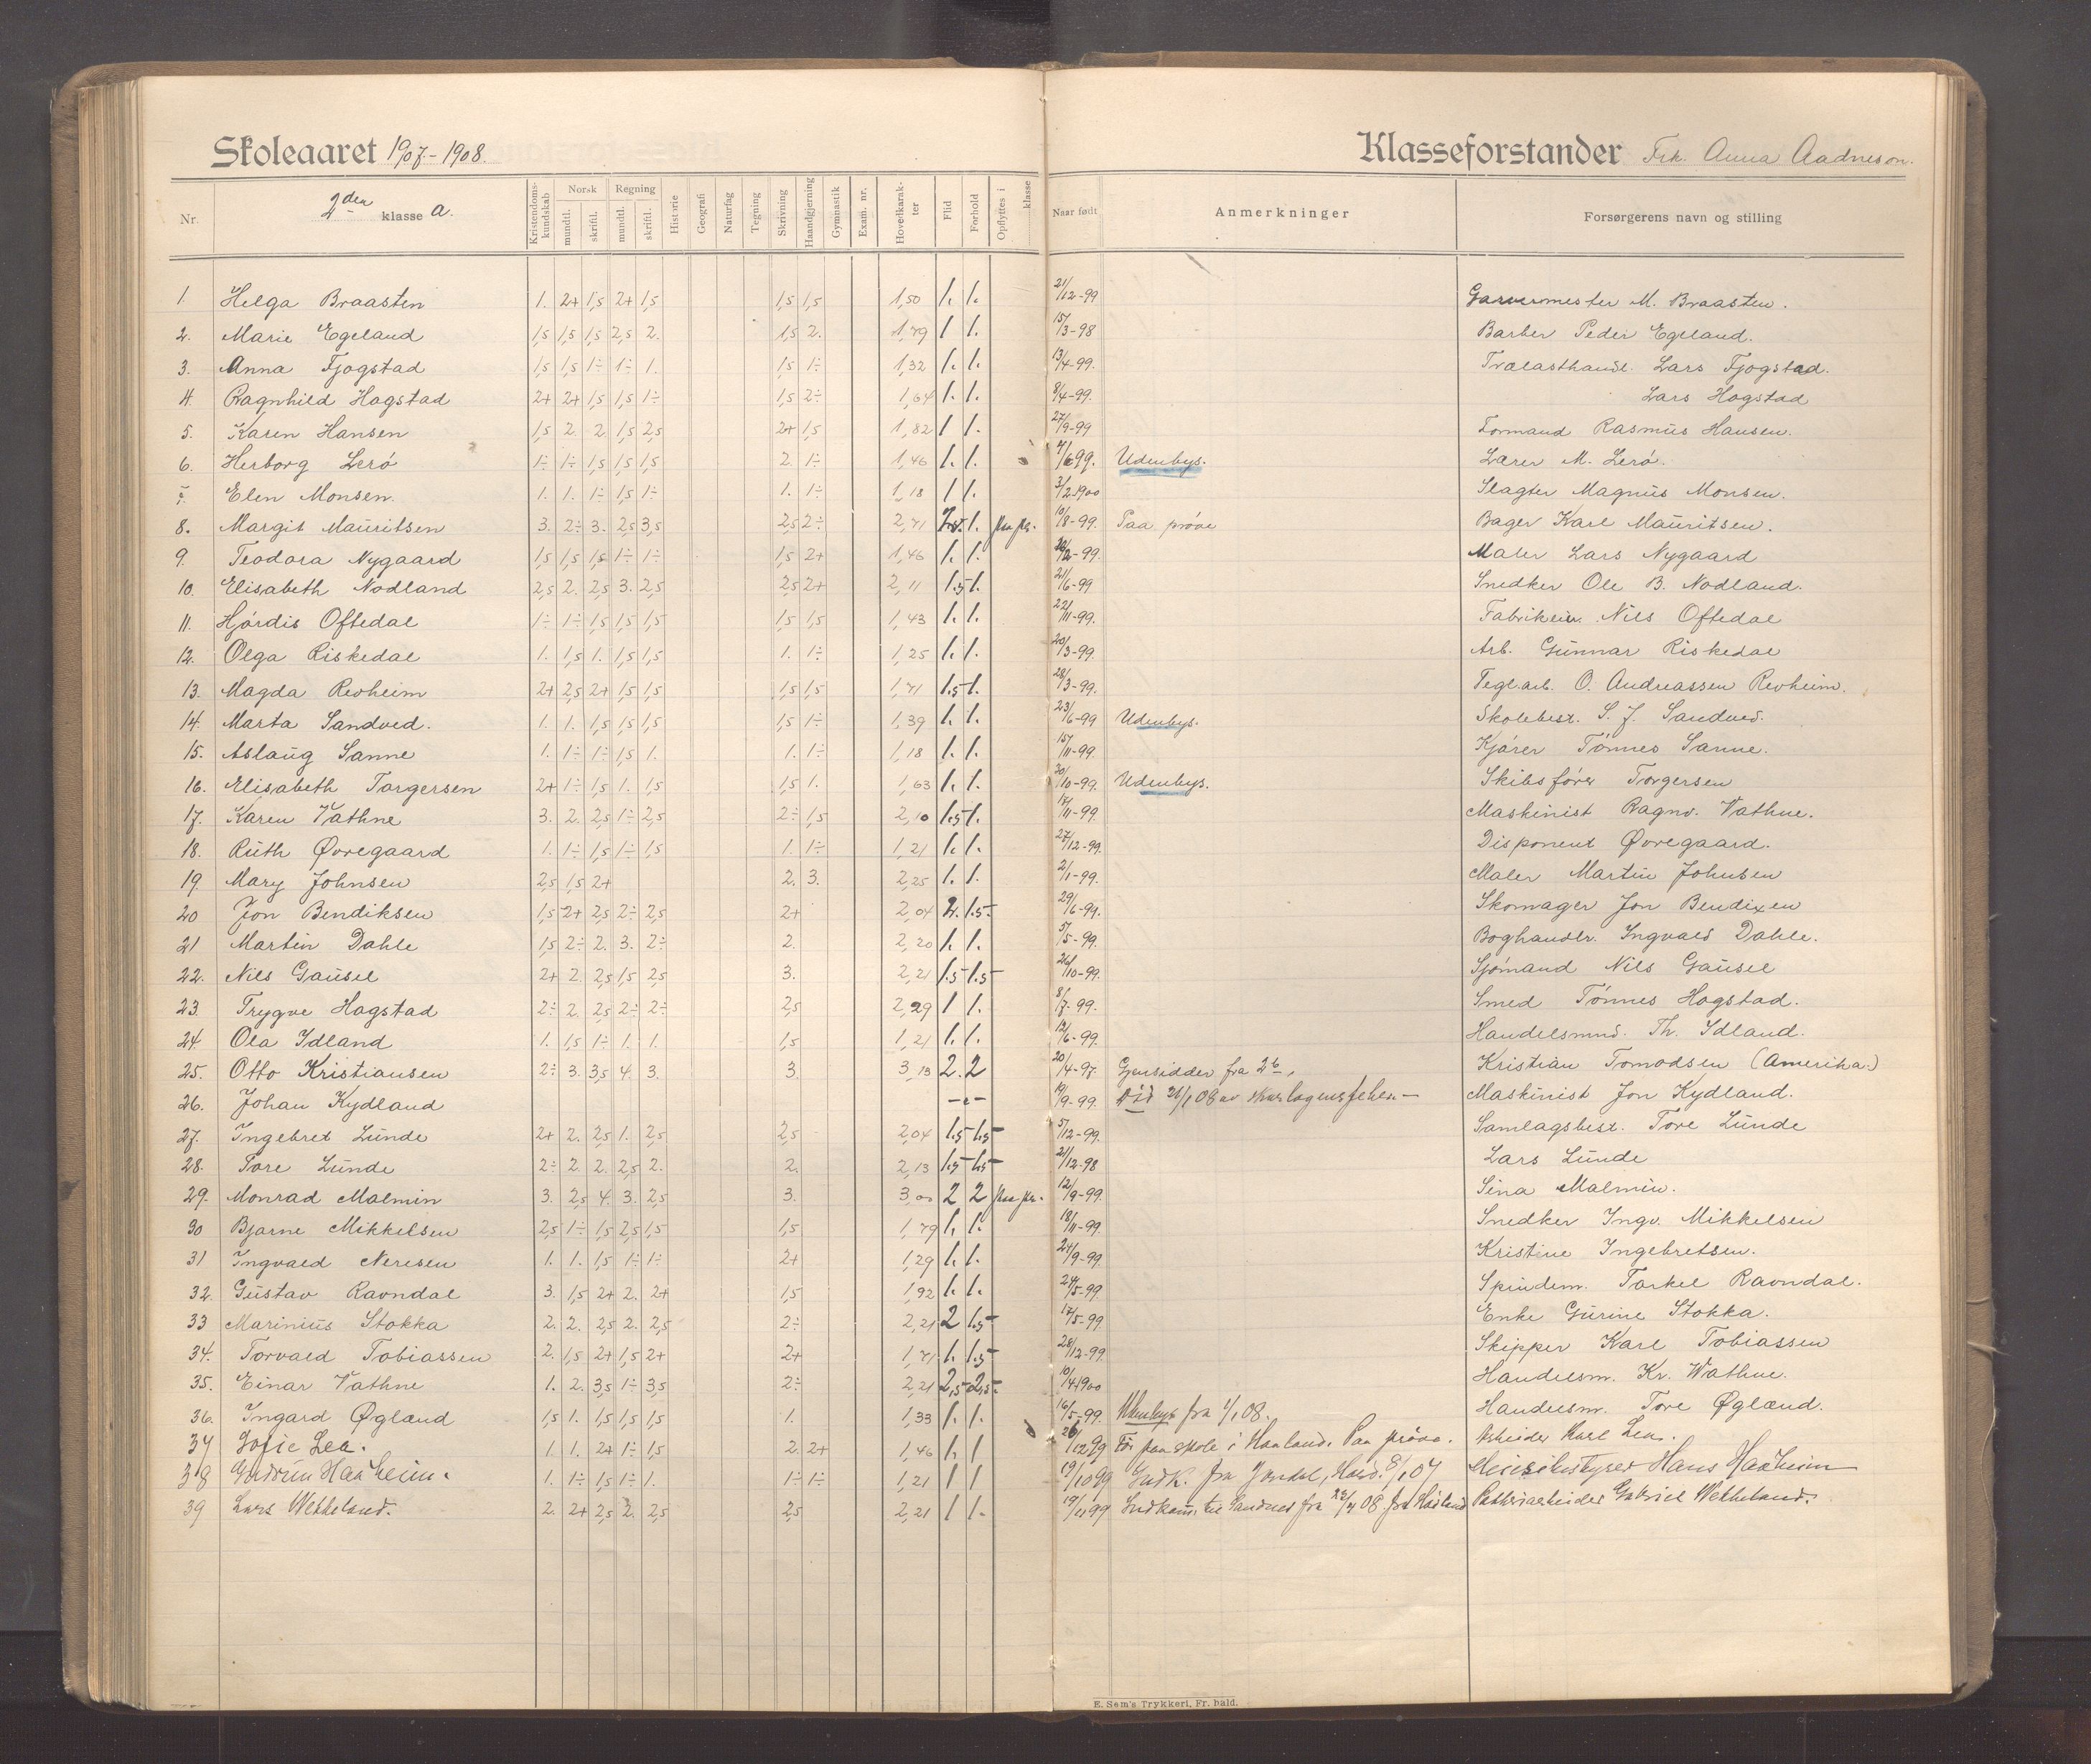 Skoleaaret 1907-1908.
Klasseforstander Frk. Anna Aadneson.
Nr. 2den klasse a. Kristendomskundskab Norsk mundtl. skriftl. Regning mundtl. skriftl. Historie Geografi Naturfag Tegning Skrivning Haandgjerning Gymnastik Exam. nr. Hovedkarakter Flid Forhold Opflyttes i klasse Naar født Anmerkninger Forsørgerens navn og stilling
1. Helga Braasten 1. 2+ 1,5 2+ 1,5 1,5 1,5 1,50 1. 1. 21/12-99 Garvermester M. Braasten.
2. Marie Egeland 1,5 1,5 1,5 2,5 2. 1,5 2. 1,79 1 1. 15/3-98 Barber Peder Egeland.
3. Anna Fjogstad 1,5 1,5 1÷ 1÷ 1. 1,5 1÷ 1,32 1. 1. 13/4-99. Trælasthandl. Lars Fjogstad.
4. Ragnhild Hogstad 2+ 2+ 1,5 1,5 1÷ 1,5 2÷ 1,64 1. 1. 8/4-99. Lars Hogstad
5. Karen Hansen 1,5 2. 2. 1,5 2,5 2+ 1,5 1,82 1 1. 27/9-99 Formand Rasmus Hansen.
6. Herborg Lerø 1÷ 1÷ 1,5 1,5 1,5 2. 1÷ 1,46 1. 1. 4/6 99. Udenbys. Lærer M. Lerø.
7. Elen Monsen. 1. 1. 1÷ 1,5 1÷ 1. 1÷ 1,18 1 1. 3/2-1900 Slagter Magnus Monsen.
8. Margit Mauritsen 3. 2÷ 3. 2,5 3,5 2,5 2÷ 2,71 1. paa pr. 10/8-99. Paa prøve Bager Karl Mauritsen.
9. Teodora Nygaard 1,5 1,5 1,5 1÷ 1÷ 1,5 2+ 1,46 1. 1. -99. Maler Lars Nygaard
10. Elisabeth Nodland 2,5 2. 2,5 3. 2,5 2,5 2+ 2,11 1.5 1. 21/6-99 Snedker Ole B. Nodland.
11. Hjørdis Oftedal 1÷ 1÷ 1,5 1,5 1,5 1,5 1,5 1,43 1. 1. 22/11-99. Fabrikeier Nils Oftedal
12. Olga Riskedal 1. 1,5 1. 1,5 1,5 1. 1÷ 1,25 1. 1. 20/3-99. Arb. Gunnar Riskedal
13. Magda Revheim 2+ 2,5 2+ 1,5 1,5 1,5 1,5 1,71 1.5 1. 28/3-99. Teglarb. O. Andreassen Revheim.
14. Marta Sandved. 1. 1. 1,5 1,5 1,5 1,5 1÷ 1,39 1. 1. 23/6-99 Udenbys. Skolebest. S. J. Sandved.
15. Aslaug Sanne 1. 1÷ 1÷ 1,5 1. 1. 1÷ 1,18 1. 1. 15/11-99. Kjører Tønnes Sanne.
16. Elisabeth Torgersen 2+ 1÷ 1,5 1. 1,5 1,5 1. 1,63 1. 1. 20/10-99. Udenbys. Skibsfører Torgersen
17. Karen Vathne 3. 2. 2,5 1÷ 2,5 2÷ 1,5 2,10 1.5 1. 17/11-99. Maskinist Ragnv. Vathne.
18. Ruth Øvregaard 1. 1÷ 1,5 1÷ 1,5 1. 1÷ 1,21 1. 1. 27/12-99. Disponent Øvregaard.
19. Mary Johnsen 2,5 1,5 2+ 2. 3. 2,25 1. 1. 2/1-99. Maler Martin Johnsen
20 Jon Bendiksen 1,5 2+ 2,5 2÷ 2,5 2+ 2,04 2. 1.5 29/6-99. Skomager Jon Bendixen
21 Martin Dahle 1,5 2÷ 2. 3. 2÷ 2. 2,20 1. 1. 5/5-99. Boghandlr. Ingvald Dahle.
22. Nils Gausel 2+ 2. 2,5 1,5 2,5 3. 2,21 1.5 1.5 26/10-99. Sjømand Nils Gausel
23. Trygve Hogstad 2÷ 2. 2,5 2÷ 2÷ 2,5 2,29 1 1. 8/7-99. Smed Tønnes Hogstad.
24 Ola Idland 1. 1,5 1÷ 1. 1. 1,5 1,21 1. 1. 12/6-99. Handelsmnd. Th. Idland.
25. Otto Kristiansen 2÷ 3. 3,5 4. 3. 3. 3,13 2. 2 20/4-97. Gjensidder fra 2b. Kristian Tomodsen (Amerika.)
26. Johan Kydland 19/9-99. Død 21/1 08 av skarlagensfeber. Maskinist Jon Kydland.
27. Ingebret Lunde 2+ 2. 2,5 1. 2,5 2,5 2,04 1.5 1.5 5/12-99. Samlagsbest. Tore Lunde
28. Tore Lunde 2÷ 2. 2. 2,5 2. 2. 2,13 1.5 1.5 21/12-98 Lars Lunde
29. Monrad Malmin 3. 2,5 4. 3. 2,5 3. 3,00 2 2 paa pr. 12/9-99. Sina Malmin.
30 Bjarne Mikkelsen 2,5 1÷ 1,5 2,5 1,5 1,5 1,79 1. 1. 18/11-99. Snedker Ingv. Mikkelsen
31 Ingvald Neresen 1. 1. 1,5 1÷ 1÷ 2+ 1,29 1. 1. 24/9-99. Kristine Ingebretsen.
32. Gustav Ravndal 3. 1,5 2+ 2. 2+ 1,5 1,92 1. 1. 24/5-99 Spindem. Torkel Ravndal.
33 Marinius Stokka 2. 2. 2,5 2. 2,5 2÷ 2,21 2 1.5 17/5-99 Enke Gurine Stokka.
34. Torvald Tobiassen 2. 1,5 2+ 1,5 2+ 2+ 1,71 1. 1.5 28/12-99. Skipper Karl Tobiassen
35. Einar Vathne 1. 2. 3,5 1÷ 3,5 2÷ 2,21 2,5 2,5 10/4 1900 Handelsm. Kr. Wathne.
36. Ingard Øglænd 1,5 1. 1,5 1,5 1,5 1. 1,33 1. 1. 16/5-99. Udenbys fra 1/1 08. Handelsm. Tore Øglænd.
37 Sofie Lea. 1. 1. 2+ 1÷ 1,5 2. 2+ 1,46 1. 1 26/12 99 Før paa skole i Haaland. Paa prøve. Arbeider Karl Lea.
38 Gudrun Haaheim. 1. 1÷ 1,5 1÷ 1. 1÷ 1÷ 1,21 1 1 19/10 99 Indk. fra Jondal, Hard. 8/1 07 Meieribestyrer Hans Haaheim
39 Lars Wetheland. 2. 2+ 2,5 2. 2,5 2,5 2,21 1 1. 19/11 99 Indkom. til Sandnes fra 08 fra Haaland Potteriarbeider Gabriel Wetheland.
E. Sem's Trykkeri, Fr. hald.